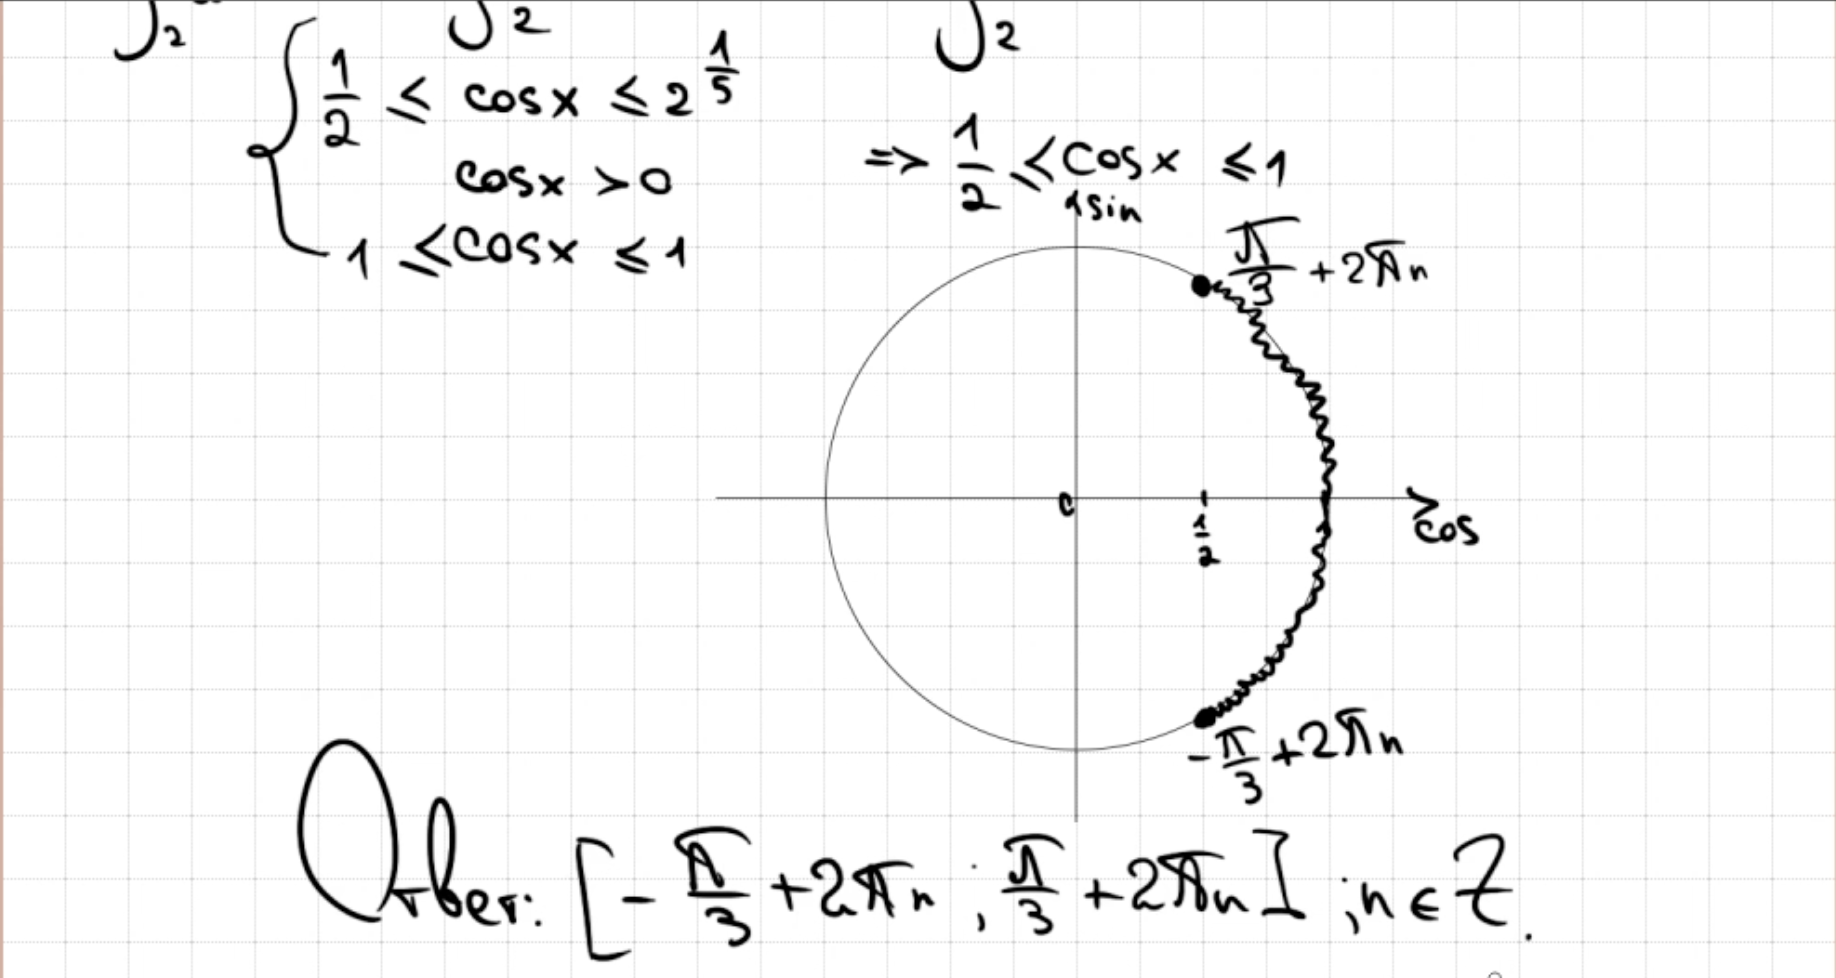 1/2 ≤ cosx ≤ 2^(1/5)
cosx > 0
-1 ≤ cosx ≤ 1
=> 1/2 ≤ cosx ≤ 1
sin
π/3 + 2πn
0
1/2
1
cos
-π/3 + 2πn
Ответ: [-π/3 + 2πn ; π/3 + 2πn] ; n ∈ Z.